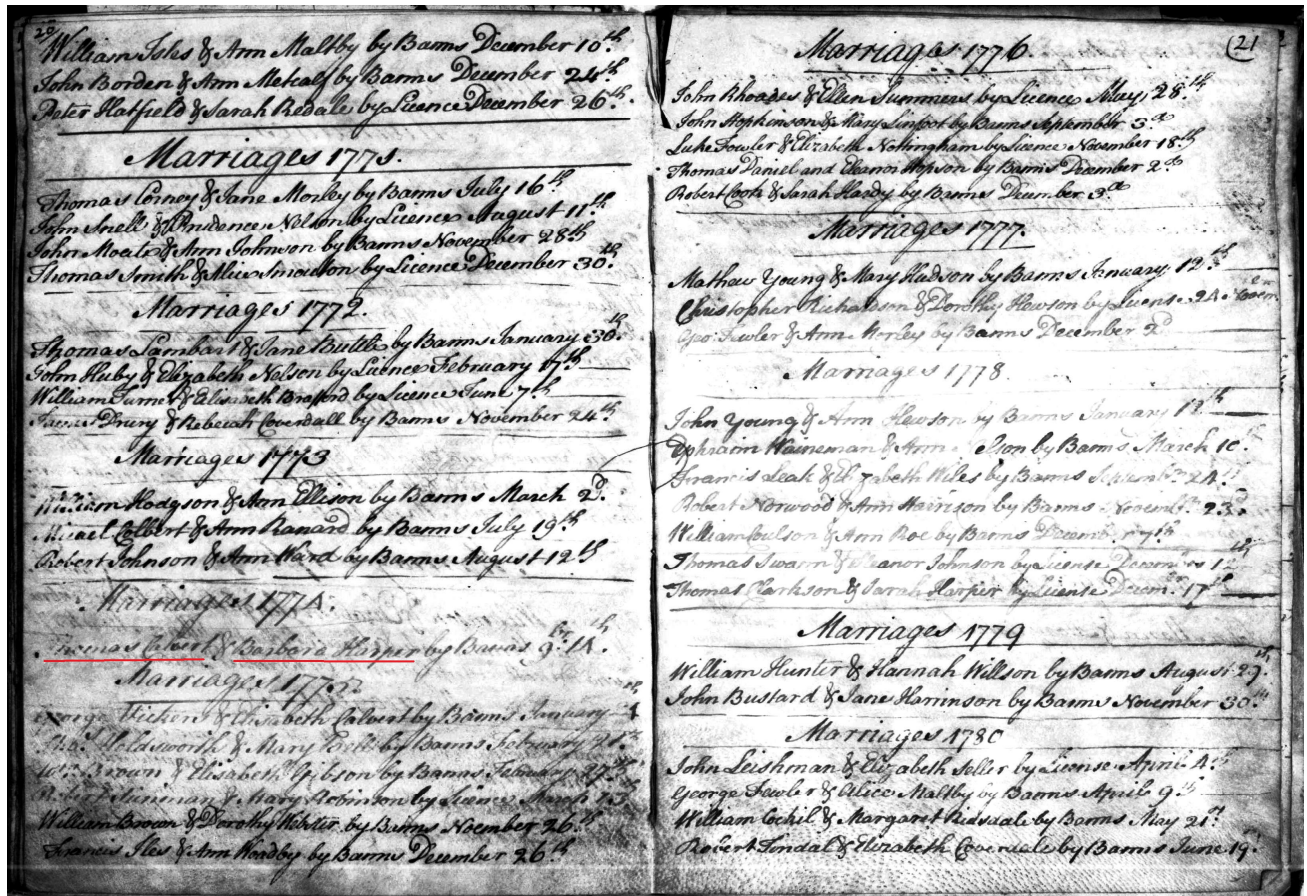 20
William Isles & Ann Maltby by Banns December 10th.
John Borden & Ann Metcalf by Banns December 24th
Peter Hatfield & Sarah Redale by Licence December 26th.
Marriages 1771.
Thomas Corney & Jane Morley by Banns July 16th
John Snell & Prudence Nelson by Licence August 11th
John Moate & Ann Johnson by Banns November 28th
Thomas Smith & Alice Smoulton by Licence December 30th.
Marriages 1772.
Thomas Lambart & Jane by Banns January 30th.
John Huby & Elizabeth Nelson by Licence February 17th
William Turner & Elisabeth by Licence June 7th
Drury & Rebecah Coverdall by Banns November 24th
Marriages 1773
William Hodgson & Ann Ellison by Banns March 2d.
Micael Colbert & Ann Ranard by Banns July 19th
Robert Johnson & Ann Ward by Banns August 12th
Marriages 1774.
Thomas Calvert & Barbara Harper by Banns 9br. 14th.
Marriages
George Vickers & Elisabeth Calvert by Banns January
Holdsworth & Mary by Banns February 21st
Wm. Brown & Elisabeth Gibson by Banns February 27th
& Mary Robinson by Licence
William Brown & Dorothy Webster by Banns Noember 26th
Francis Iles & Ann Hoadby by Banns December 26th
21
Marriages 1776.
John Rhoades & Ellen Summers by Licence May 28th
John Hopkinson & Mary Linfoot by Banns September 3d
Luke Fowler & Elizabeth Nottingham by Licence November 18th
Thomas Daniel and Eleanor Hopson by Banns December 2d
Robert Cook & Sarah Hardy by Banns December 3d
Marriages 1777.
Mathew Young & Mary Hudson by Banns January 12th
Christopher Richardson & Dorothy Hewson by License 24 Novem.er
Geo. Fewler & Ann Morley by Banns December 2d
Marriages 1778.
John Young & Ann Hewson by Banns January 12th
Ephraim Waineman & Ann by Banns March 10th
Francis Leak & Elizabeth Wiles by Banns Septembr. 24th
Robert Norwood & Ann Harrison by Banns Novembr. 23d.
William Coulson & Ann Roe by Banns December 7th
Thomas Swann & Eleanor Johnson by License December 12th
Thomas Clarkson & Sarah Harper by License Decemr. 17th
Marriages 1779
William Hunter & Hannah Willson by Banns August 29th.
John Bustard & Jane Harrinson by Banns November 30th.
Marriages 1780
John Leishman & Elizabeth Seller by License April 4th
George Fewler & Alice Maltby by Banns April 9th
William Cockil & Margaret Ridsdale by Banns May 21st.
Robert Tindal & Elizabeth Coverdale by Banns June 19th.